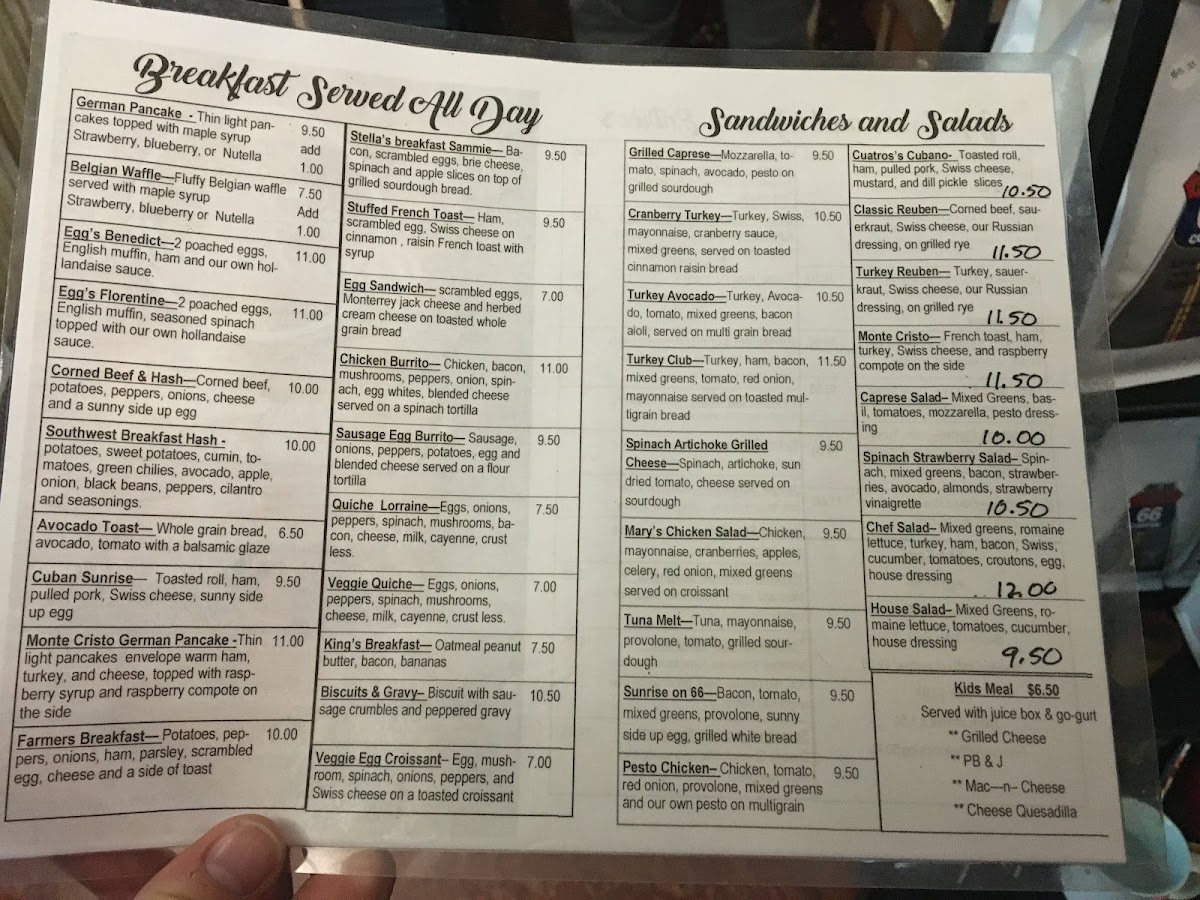 Breakfast Served All Day
German Pancake - Thin light pan-
cakes topped with maple syrup
Strawberry, blueberry, or Nutella
9.50
add
1.00
Belgian Waffle—Fluffy Belgian waffle
served with maple syrup
Strawberry, blueberry or Nutella
7.50
Add
1.00
Egg's Benedict—2 poached eggs,
English muffin, ham and our own hol-
landaise sauce.
11.00
Egg's Florentine—2 poached eggs,
English muffin, seasoned spinach
topped with our own hollandaise
sauce.
11.00
Corned Beef & Hash—Corned beef,
potatoes, peppers, onions, cheese
and a sunny side up egg
10.00
Southwest Breakfast Hash -
potatoes, sweet potatoes, cumin, to-
matoes, green chilies, avocado, apple,
onion, black beans, peppers, cilantro
and seasonings.
10.00
Avocado Toast— Whole grain bread,
avocado, tomato with a balsamic glaze
6.50
Cuban Sunrise— Toasted roll, ham,
pulled pork, Swiss cheese, sunny side
up egg
9.50
Monte Cristo German Pancake -Thin
light pancakes envelope warm ham,
turkey, and cheese, topped with rasp-
berry syrup and raspberry compote on
the side
11.00
Farmers Breakfast— Potatoes, pep-
pers, onions, ham, parsley, scrambled
egg, cheese and a side of toast
10.00
Stella's breakfast Sammie— Ba-
con, scrambled eggs, brie cheese,
spinach and apple slices on top of
grilled sourdough bread.
9.50
Stuffed French Toast— Ham,
scrambled egg, Swiss cheese on
cinnamon , raisin French toast with
syrup
9.50
Egg Sandwich— scrambled eggs,
Monterrey jack cheese and herbed
cream cheese on toasted whole
grain bread
7.00
Chicken Burrito— Chicken, bacon,
mushrooms, peppers, onion, spin-
ach, egg whites, blended cheese
served on a spinach tortilla
11.00
Sausage Egg Burrito— Sausage,
onions, peppers, potatoes, egg and
blended cheese served on a flour
tortilla
9.50
Quiche Lorraine—Eggs, onions,
peppers, spinach, mushrooms, ba-
con, cheese, milk, cayenne, crust
less.
7.50
Veggie Quiche— Eggs, onions,
peppers, spinach, mushrooms,
cheese, milk, cayenne, crust less.
7.00
King's Breakfast— Oatmeal peanut
butter, bacon, bananas
7.50
Biscuits & Gravy– Biscuit with sau-
sage crumbles and peppered gravy
10.50
Veggie Egg Croissant– Egg, mush-
room, spinach, onions, peppers, and
Swiss cheese on a toasted croissant
7.00
Sandwiches and Salads
Grilled Caprese—Mozzarella, to-
mato, spinach, avocado, pesto on
grilled sourdough
9.50
Cranberry Turkey—Turkey, Swiss,
mayonnaise, cranberry sauce,
mixed greens, served on toasted
cinnamon raisin bread
10.50
Turkey Avocado—Turkey, Avoca-
do, tomato, mixed greens, bacon
aioli, served on multi grain bread
10.50
Turkey Club—Turkey, ham, bacon,
mixed greens, tomato, red onion,
mayonnaise served on toasted mul-
tigrain bread
11.50
Spinach Artichoke Grilled
Cheese—Spinach, artichoke, sun
dried tomato, cheese served on
sourdough
9.50
Mary's Chicken Salad—Chicken,
mayonnaise, cranberries, apples,
celery, red onion, mixed greens
served on croissant
9.50
Tuna Melt—Tuna, mayonnaise,
provolone, tomato, grilled sour-
dough
9.50
Sunrise on 66—Bacon, tomato,
mixed greens, provolone, sunny
side up egg, grilled white bread
9.50
Pesto Chicken– Chicken, tomato,
red onion, provolone, mixed greens
and our own pesto on multigrain
9.50
Cuatros's Cubano- Toasted roll,
ham, pulled pork, Swiss cheese,
mustard, and dill pickle slices
10.50
Classic Reuben—Corned beef, sau-
erkraut, Swiss cheese, our Russian
dressing, on grilled rye
11.50
Turkey Reuben— Turkey, sauer-
kraut, Swiss cheese, our Russian
dressing, on grilled rye
11.50
Monte Cristo— French toast, ham,
turkey, Swiss cheese, and raspberry
compote on the side
11.50
Caprese Salad– Mixed Greens, bas-
il, tomatoes, mozzarella, pesto dress-
ing
10.00
Spinach Strawberry Salad– Spin-
ach, mixed greens, bacon, strawber-
ries, avocado, almonds, strawberry
vinaigrette
10.50
Chef Salad– Mixed greens, romaine
lettuce, turkey, ham, bacon, Swiss,
cucumber, tomatoes, croutons, egg,
house dressing
12.00
House Salad– Mixed Greens, ro-
maine lettuce, tomatoes, cucumber,
house dressing
9.50
Kids Meal $6.50
Served with juice box & go-gurt
** Grilled Cheese
** PB & J
** Mac—n– Cheese
** Cheese Quesadilla
66